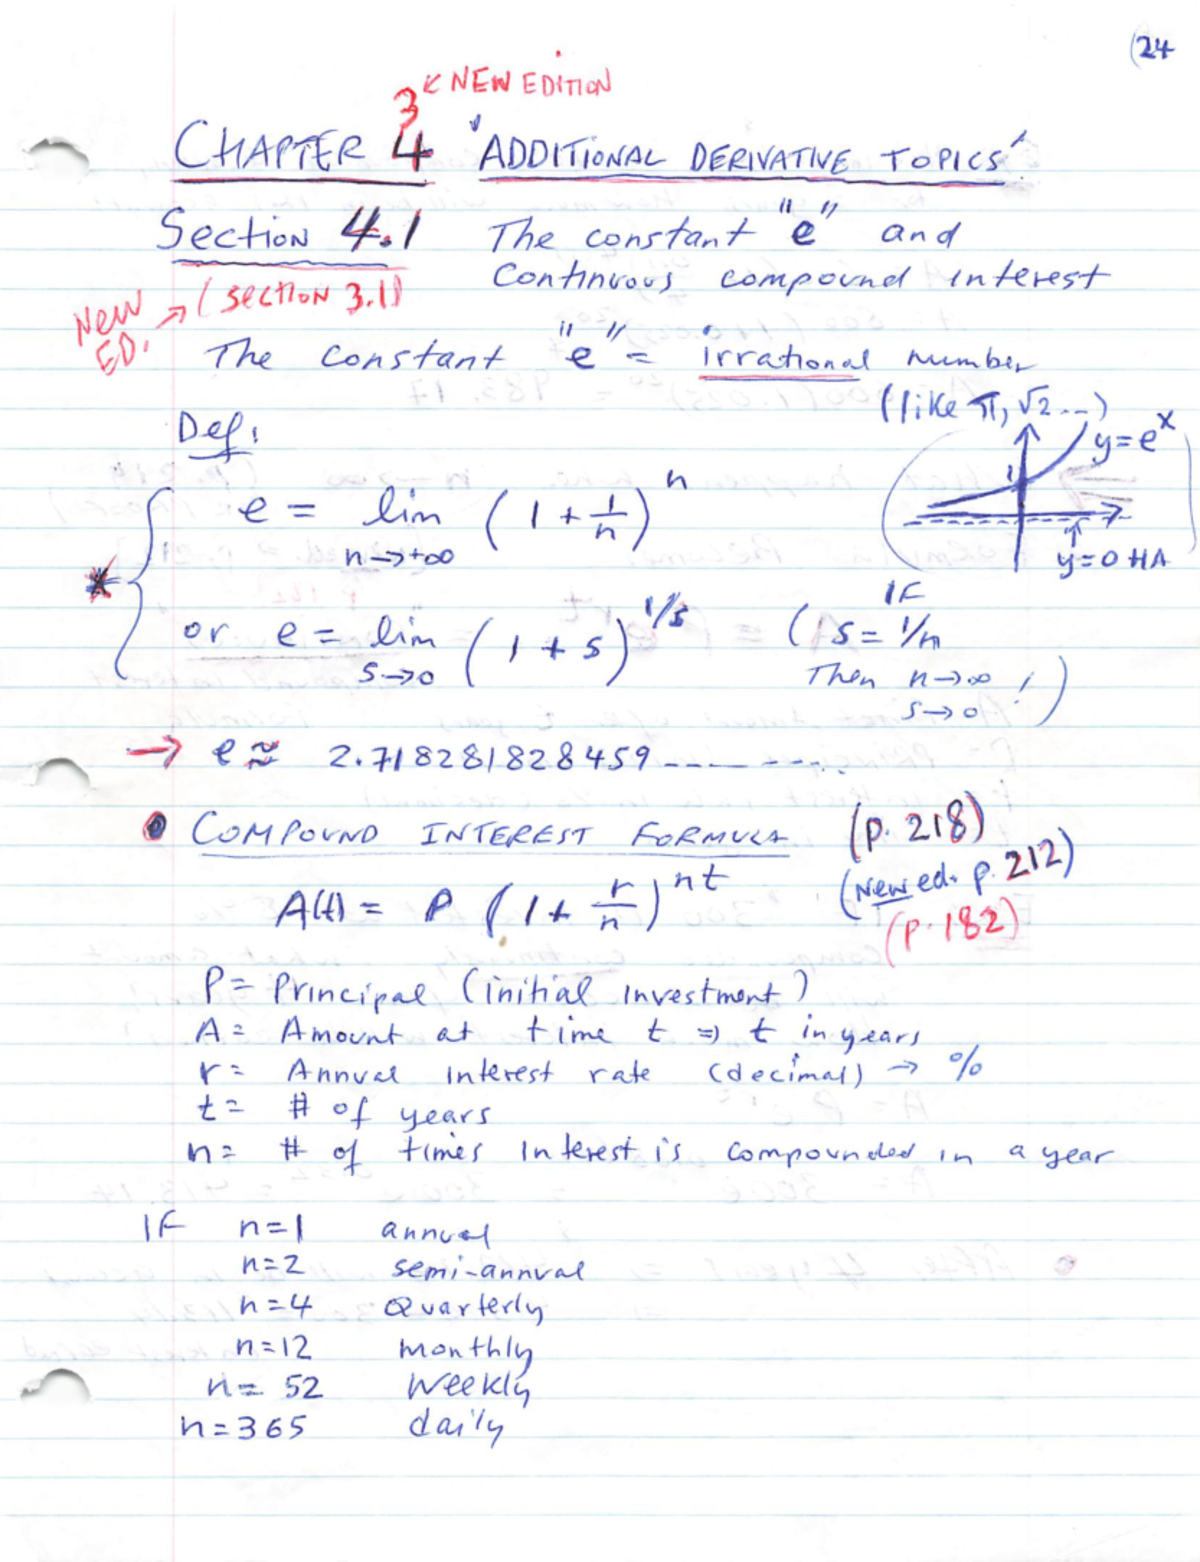 (24
3 < NEW EDITION
CHAPTER 4 "ADDITIONAL DERIVATIVE TOPICS"
Section 4.1 The constant "e" and
Continuous compound interest
New ED. → (section 3.1)
The constant "e" = irrational number
(like π, √2 ...)
Def:
e = lim (1 + 1/n)^n
n→+∞
y = e^x
1
y=0 HA
or e = lim (1 + s)^1/s
s→0
(IF s = 1/n
Then n→∞
s→0 !)
→ e ≈ 2.718281828459.........
• COMPOUND INTEREST FORMULA (p. 218)
(New ed. p. 212)
(p. 182)
A(t) = P (1 + r/n)^nt
P = Principal (initial investment)
A = Amount at time t ⇒ t in years
r = Annual interest rate (decimal) → %
t = # of years
n = # of times interest is compounded in a year
IF n=1 annual
n=2 semi-annual
n=4 Quarterly
n=12 monthly
n= 52 Weekly
n=365 daily